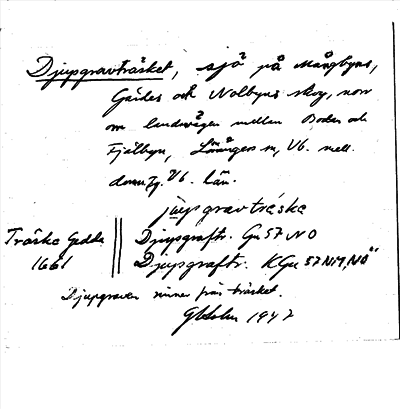 Djupgravträsket, sjö på Mångbyns,
Gärdes och Nolbyns skog, norr
om landsvägen mellan Boden och
Fjälbyn, Lövångers sn, Vb. mell.
domsg. Vb. län.
jụpgravträske
Träske Gedda
1661
Djupgraftr. Gu 57 NO
Djupgraftr. KGu 57 NM, NÖ
Djupgraven rinner från träsket.
Holm 1942